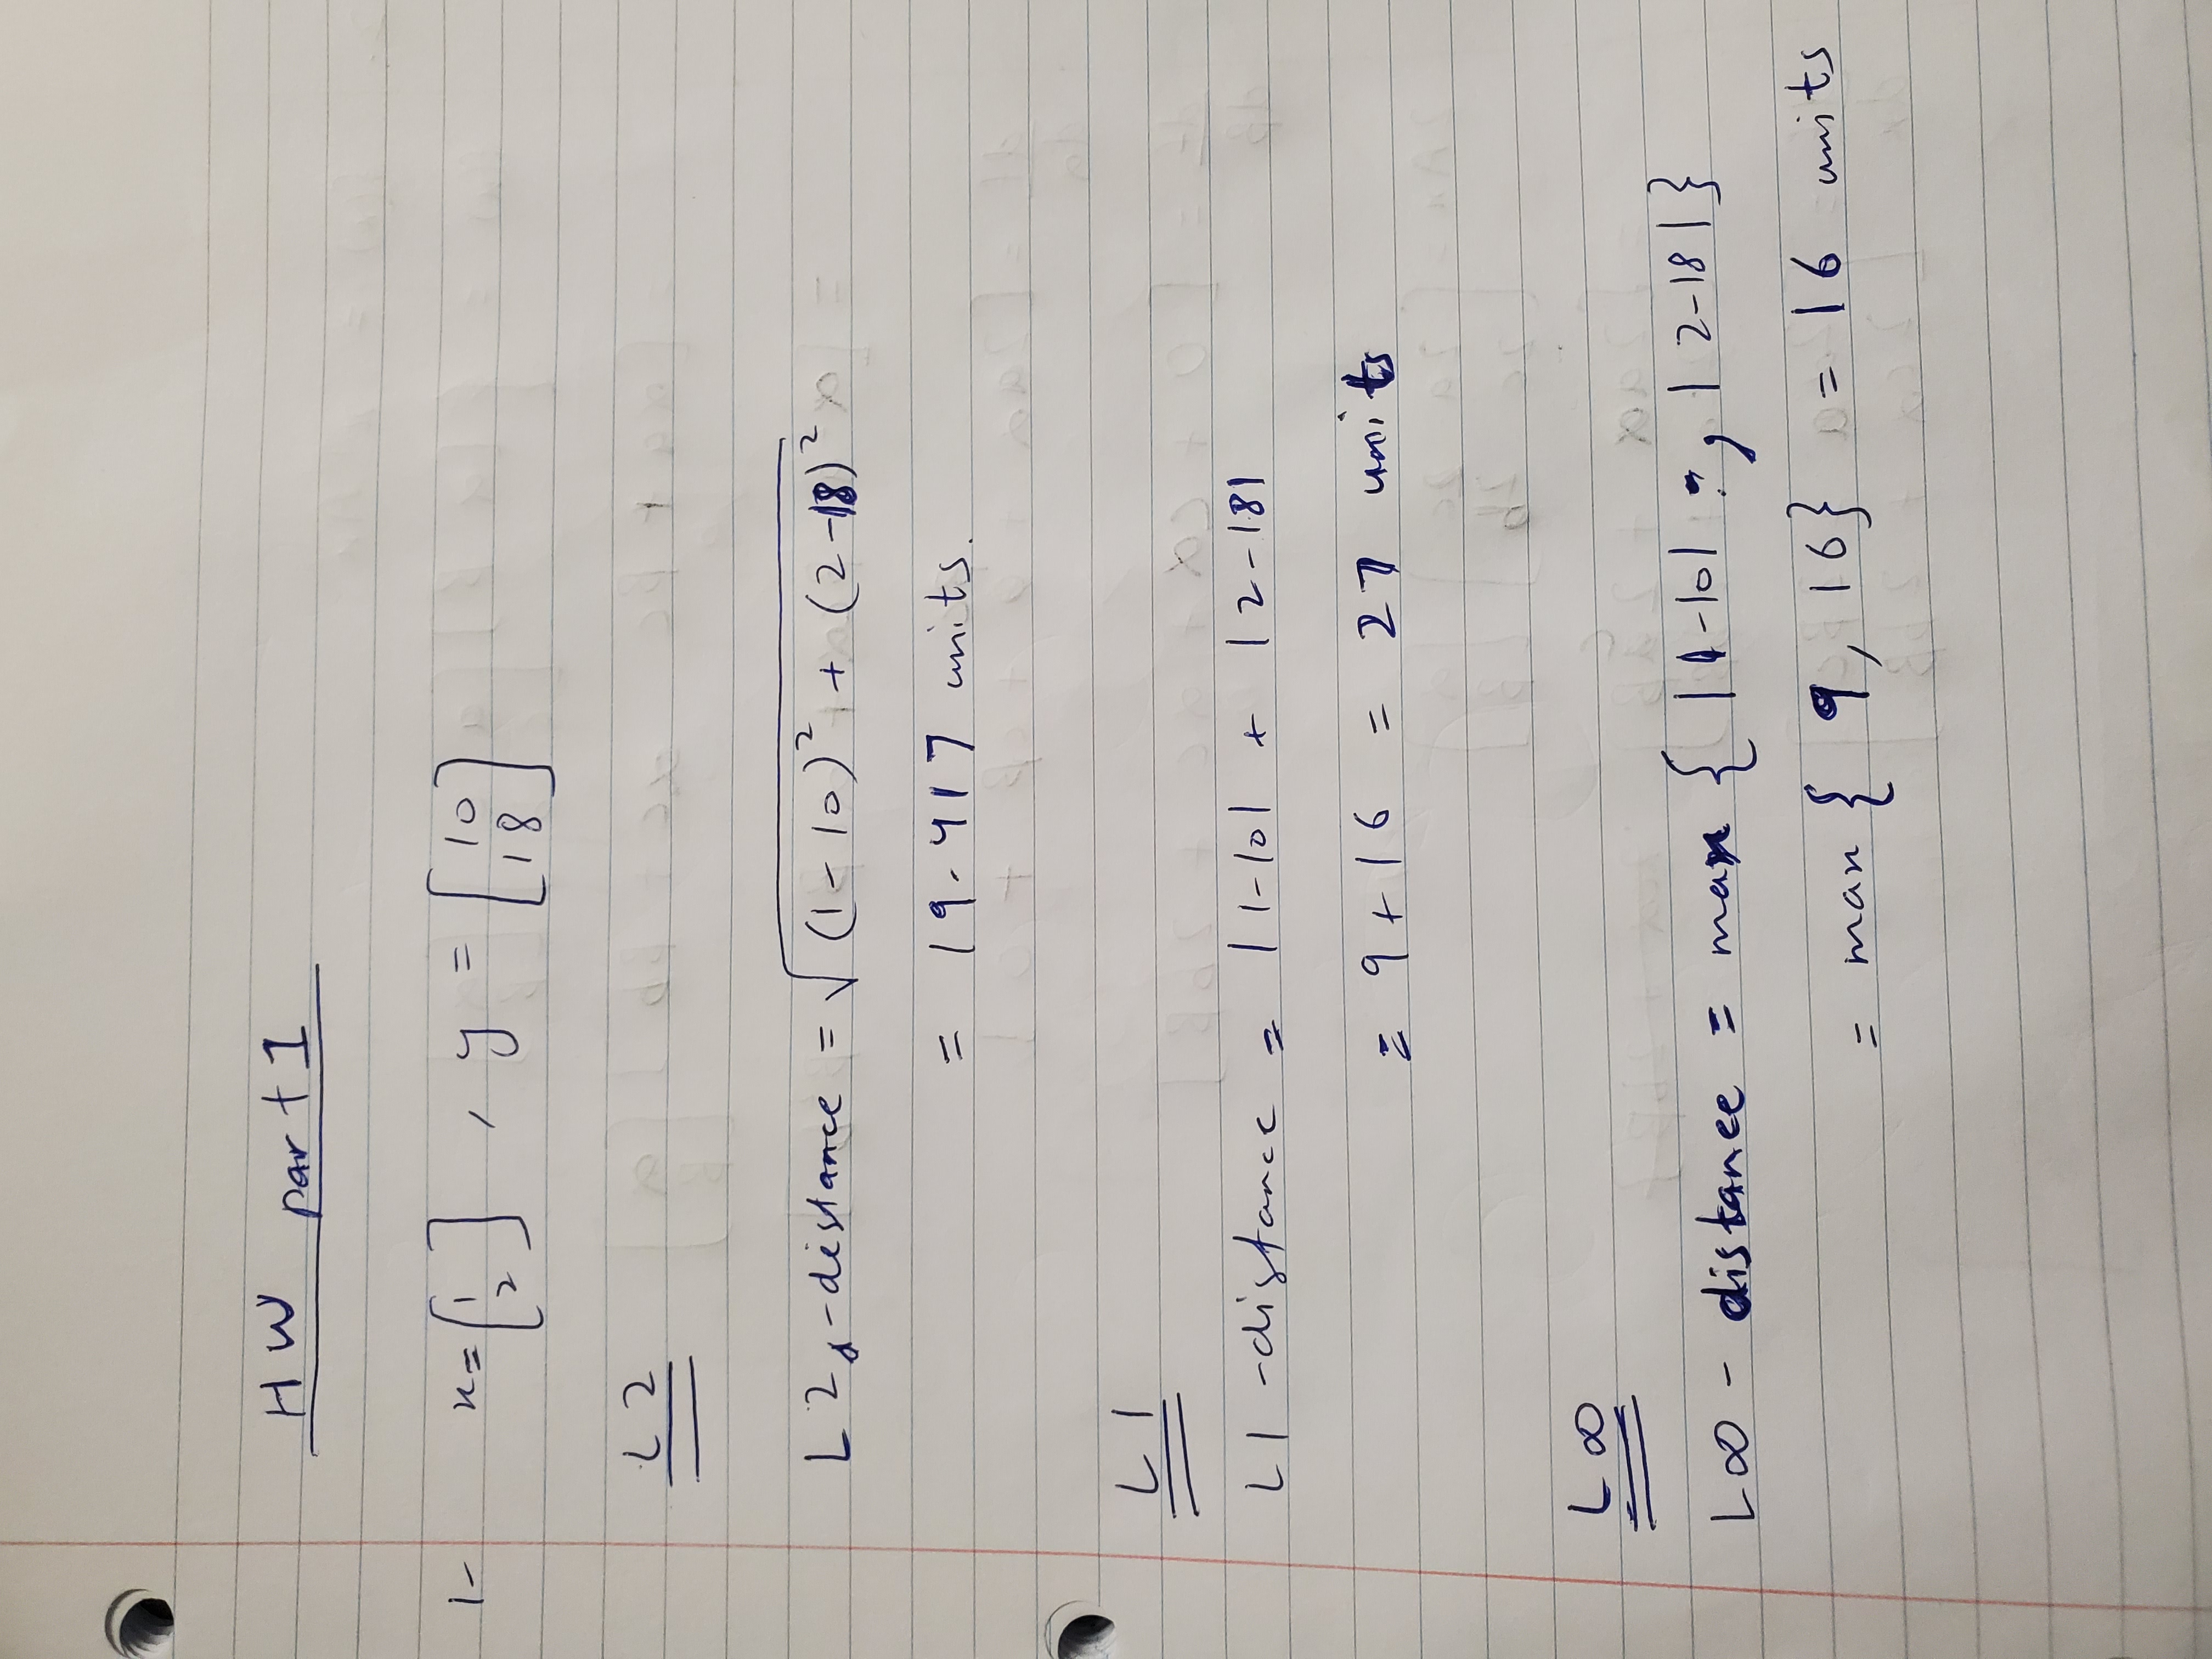 HW part 1
1- x = [1 2] , y = [10 18]
L2
L2 -distance = √(1-10)² + (2-18)²
= 19.417 units.
L1
L1 -distance = |1-10| + |2-18|
= 9+16 = 27 units
L∞
L∞ - distance = max { |1-10| , |2-18| }
= max { 9, 16} = 16 units